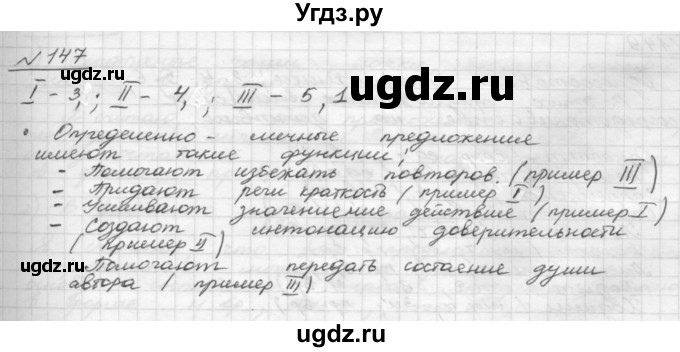 Угдз.ру
№147
I - 3, ; II - 4, ; III - 5, 1
угдз.ру
• Определенно - личные предложения
имеют такие функции;
- Помогают избежать повторов. (пример III)
- Придают речи краткость (пример I)
- Усиливают значенение действие (пример I)
- Создают интонацию доверительности
(пример II)
- Помогают передать состаение души
автора ( пример III)
uгдз.ru
uгдз.ru